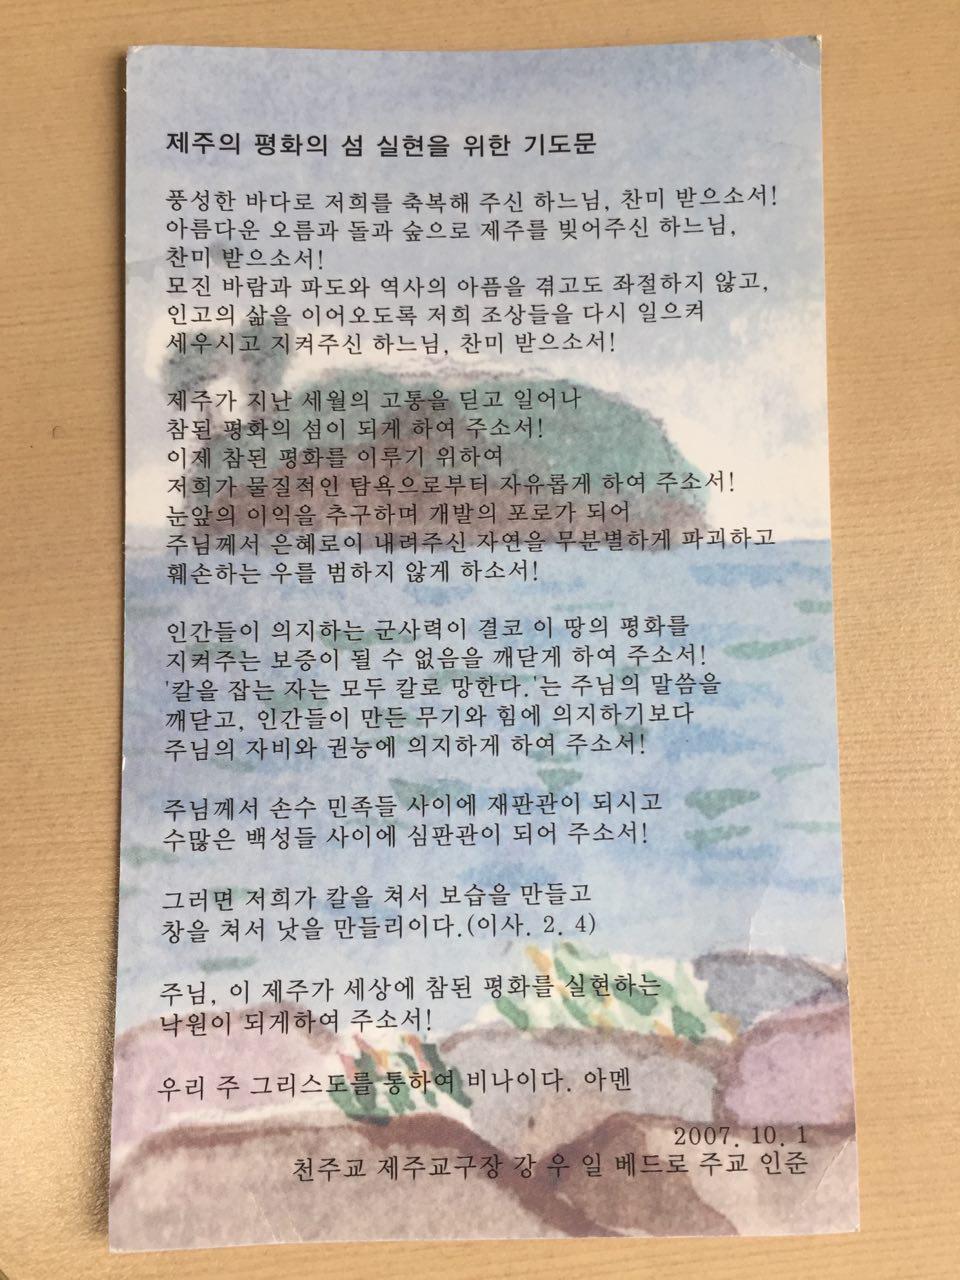 제주의 평화의 섬 실현을 위한 기도문
풍성한 바다로 저희를 축복해 주신 하느님, 찬미 받으소서!
아름다운 오름과 돌과 숲으로 제주를 빚어주신 하느님,
찬미 받으소서!
모진 바람과 파도와 역사의 아픔을 겪고도 좌절하지 않고,
인고의 삶을 이어오도록 저희 조상들을 다시 일으켜
세우시고 지켜주신 하느님, 찬미 받으소서!
제주가 지난 세월의 고통을 딛고 일어나
참된 평화의 섬이 되게 하여 주소서!
이제 참된 평화를 이루기 위하여
저희가 물질적인 탐욕으로부터 자유롭게 하여 주소서!
눈앞의 이익을 추구하며 개발의 포로가 되어
주님께서 은혜로이 내려주신 자연을 무분별하게 파괴하고
훼손하는 우를 범하지 않게 하소서!
인간들이 의지하는 군사력이 결코 이 땅의 평화를
지켜주는 보증이 될 수 없음을 깨닫게 하여 주소서!
'칼을 잡는 자는 모두 칼로 망한다.'는 주님의 말씀을
깨닫고, 인간들이 만든 무기와 힘에 의지하기보다
주님의 자비와 권능에 의지하게 하여 주소서!
주님께서 손수 민족들 사이에 재판관이 되시고
수많은 백성들 사이에 심판관이 되어 주소서!
그러면 저희가 칼을 쳐서 보습을 만들고
창을 쳐서 낫을 만들리이다.(이사. 2. 4)
주님, 이 제주가 세상에 참된 평화를 실현하는
낙원이 되게하여 주소서!
우리 주 그리스도를 통하여 비나이다. 아멘
2007. 10. 1
천주교 제주교구장 강 우 일 베드로 주교 인준